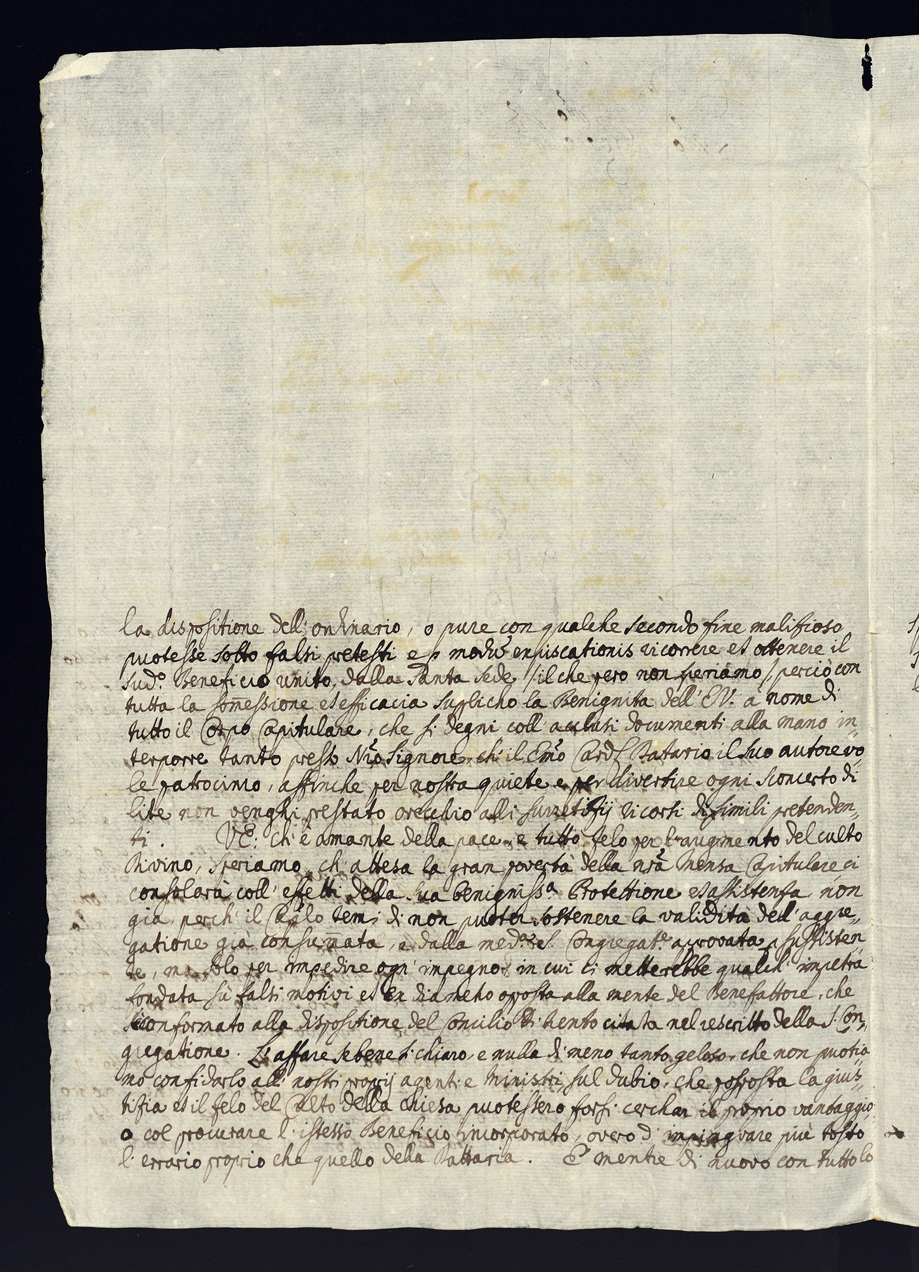 la dispositione dell'ordinario, o pure con qualche secondo fine malitioso
puotesse sotto falsi pretesti e p modũ expiscationis ricorrere et ottenere il
sud.º Beneficio unito dalla Santa Sede /:il che pero non speriamo:/ perciò con
tutta la somessione et efficacia suplicho la Benignita dell'E.V. à nome di
tutto il Corpo Capitulare, che si degni coll'acclusi documenti alla mano in=
terporre tanto presso N'ro Signore, ch'il Em̃o Card. Datario il suo autorevo=
le patrocinio, affinche per nostra quiete e per divertire ogni sconcerto di
lite non venghi prestato orecchio alli surretitij ricorsi di simili pretenden=
ti. V.E. ch'è amante della pace, e tutto zelo per l'augmento del culto
Divino, speriamo, ch'attesa la gran povertà della n'ra Mensa Capitulare ci
consolarà coll'effetti della sua Benigniss.ª Protettione et assistenza non
già perch'il Cap'lo temi di non puoter sostenere la validità dell'aggre=
gatione già consumata, e dalla med. S. Congregat.e aprovata p sussisten=
te, ma solo per impedire ogn'impegno in cui ci metterebbe qualch'impetra
fondata sù falsi motivi et ex diametro oposta alla mente del Benefattore, che
si conformato alla dispositione del Concilio di Trento citata nel rescritto della S. Con=
gregatione. L'affare sebene sì chiaro, e nulla di meno tanto geloso, che non puotia=
mo confidarlo alli nostri proprij agenti e Ministri sul dubio, che posposta la gius=
titia et il zelo del Culto della Chiesa puotessero forsi cerchar il proprio vantaggio
o col procurare l'istesso Beneficio incorporato, overo d'impinguare più tosto
l'errario proprio che quello della Dattaria. E mentre di nuovo con tutto lo